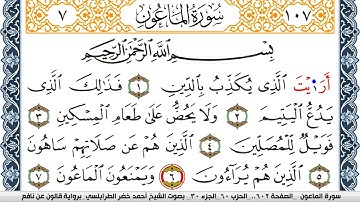 ٧ سُورَةُ الْمَاعُونِ ١٠٧
بِسْمِ اللَّهِ الرَّحْمَٰنِ الرَّحِيمِ
أَرَٰٓيْتَ الَّذِى يُكَذِّبُ بِالدِّينِ ١ فَذَٰلِكَ الَّذِى
يَدُعُّ الْيَتِيمَ ٢ وَلَا يَحُضُّ عَلَىٰ طَعَامِ الْمِسْكِينِ ٣
فَوَيْلٌ لِّلْمُصَلِّينَ ٤ الَّذِينَ هُمْ عَن صَلَاتِهِمْ سَاهُونَ
٥ الَّذِينَ هُمْ يُرَآءُونَ ٦ وَيَمْنَعُونَ الْمَاعُونَ ٧
سورة الماعون . الصفحة ٦٠٢ . الحزب ٦٠ . الجزء ٣٠ . بصوت الشيخ أحمد خضر الطرابلسي . برواية قالون عن نافع